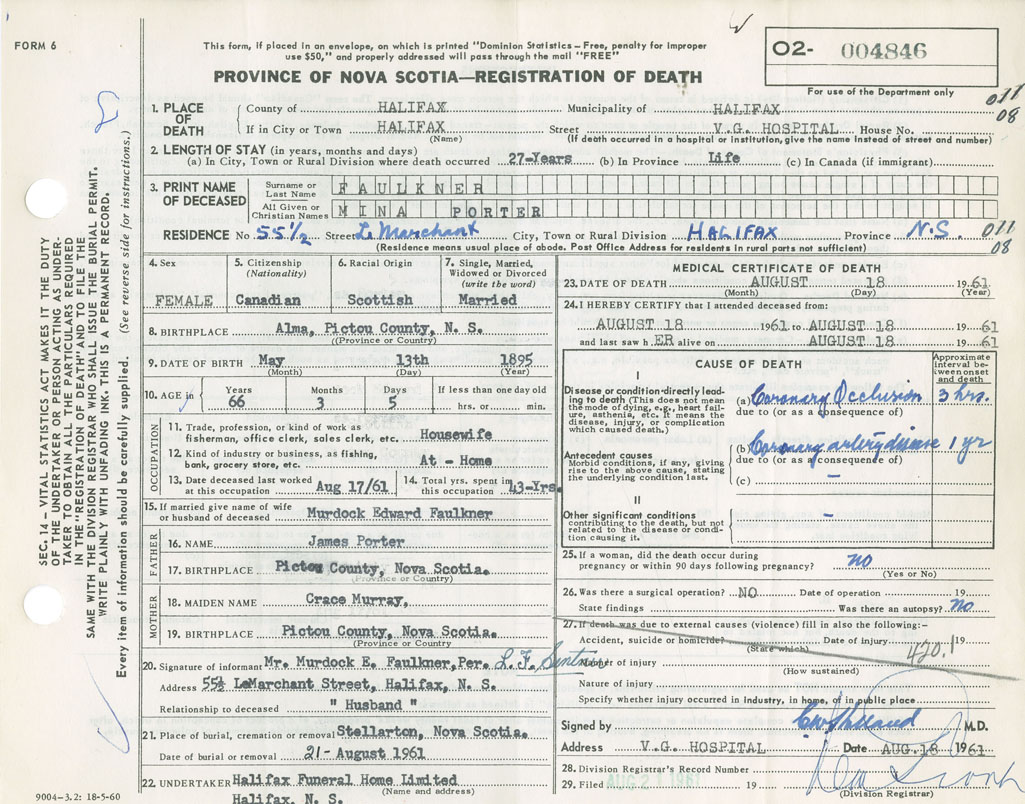 FORM 6
This form, if placed in an envelope, on which is printed "Dominion Statistics—Free, penalty for improper
use $50," and properly addressed will pass through the mail "FREE"
O2- 004846
For use of the Department only
PROVINCE OF NOVA SCOTIA—REGISTRATION OF DEATH
011
08
1. PLACE OF DEATH
County of HALIFAX Municipality of HALIFAX
If in City or Town HALIFAX Street V.G. HOSPITAL House No.
(Name) (If death occurred in a hospital or institution, give the name instead of street and number)
2. LENGTH OF STAY (in years, months and days)
(a) In City, Town or Rural Division where death occurred 27-Years (b) In Province Life (c) In Canada (if immigrant)
3. PRINT NAME OF DECEASED
Surname or Last Name FAULKNER
All Given or Christian Names MINA PORTER
RESIDENCE No 55 1/2 Street Le Marchant City, Town or Rural Division HALIFAX Province N.S. 011
08
(Residence means usual place of abode. Post Office Address for residents in rural parts not sufficient)
4. Sex
FEMALE
5. Citizenship (Nationality)
Canadian
6. Racial Origin
Scottish
7. Single, Married, Widowed or Divorced (write the word)
Married
8. BIRTHPLACE Alma, Pictou County, N. S.
(Province or Country)
9. DATE OF BIRTH May 13th 1895
(Month) (Day) (Year)
10. AGE in Years 66 Months 3 Days 5 If less than one day old hrs. or min.
OCCUPATION
11. Trade, profession, or kind of work as fisherman, office clerk, sales clerk, etc. Housewife
12. Kind of industry or business, as fishing, bank, grocery store, etc. At - Home
13. Date deceased last worked at this occupation Aug 17/61
14. Total yrs. spent in this occupation 43-Yrs.
15. If married give name of wife or husband of deceased Murdock Edward Faulkner
FATHER
16. NAME James Porter
17. BIRTHPLACE Pictou County, Nova Scotia.
(Province or Country)
MOTHER
18. MAIDEN NAME Crace Murray,
19. BIRTHPLACE Pictou County, Nova Scotia.
(Province or Country)
20. Signature of informant Mr. Murdock E. Faulkner, Per. L. F.
Address 55½ LeMarchant Street, Halifax, N. S.
Relationship to deceased " Husband "
21. Place of burial, cremation or removal Stellarton, Nova Scotia.
Date of burial or removal 21- August 1961
22. UNDERTAKER Halifax Funeral Home Limited
(Name and address)
Halifax, N. S.
9004-3.2: 18-5-60
MEDICAL CERTIFICATE OF DEATH
23. DATE OF DEATH AUGUST 18 1961
(Month) (Day) (Year)
24. I HEREBY CERTIFY that I attended deceased from:
AUGUST 18 1961 to AUGUST 18 19 61
and last saw h ER alive on AUGUST 18 19 61
CAUSE OF DEATH
Approximate interval between onset and death
I
Disease or condition directly leading to death (This does not mean the mode of dying, e.g., heart failure, asthenia, etc. It means the disease, injury, or complication which caused death.)
(a) Coronary Occlusion 3 hrs.
due to (or as a consequence of)
Antecedent causes
Morbid conditions, if any, giving rise to the above cause, stating the underlying condition last.
(b) Coronary artery disease 1 yr
due to (or as a consequence of)
(c) -
II
Other significant conditions
contributing to the death, but not related to the disease or condition causing it.
-
25. If a woman, did the death occur during pregnancy or within 90 days following pregnancy? no
(Yes or No)
26. Was there a surgical operation? NO Date of operation 19
State findings Was there an autopsy? no
27. If death was due to external causes (violence) fill in also the following:-
Accident, suicide or homicide? Date of injury 19
(State which)
420.1
Manner of injury
(How sustained)
Nature of injury
Specify whether injury occurred in industry, in home, or in public place
Signed by M.D.
Address V.G. HOSPITAL Date AUG.18 1961
28. Division Registrar's Record Number
29. Filed AUG 21 1961 19
(Division Registrar)
SEC. 14 — VITAL STATISTICS ACT MAKES IT THE DUTY
OF THE UNDERTAKER OR PERSON ACTING AS UNDER-
TAKER TO OBTAIN ALL THE PARTICULARS REQUIRED
IN THE "REGISTRATION OF DEATH" AND TO FILE THE
SAME WITH THE DIVISION REGISTRAR WHO SHALL ISSUE THE BURIAL PERMIT.
WRITE PLAINLY WITH UNFADING INK. THIS IS A PERMANENT RECORD.
Every item of information should be carefully supplied. (See reverse side for instructions.)